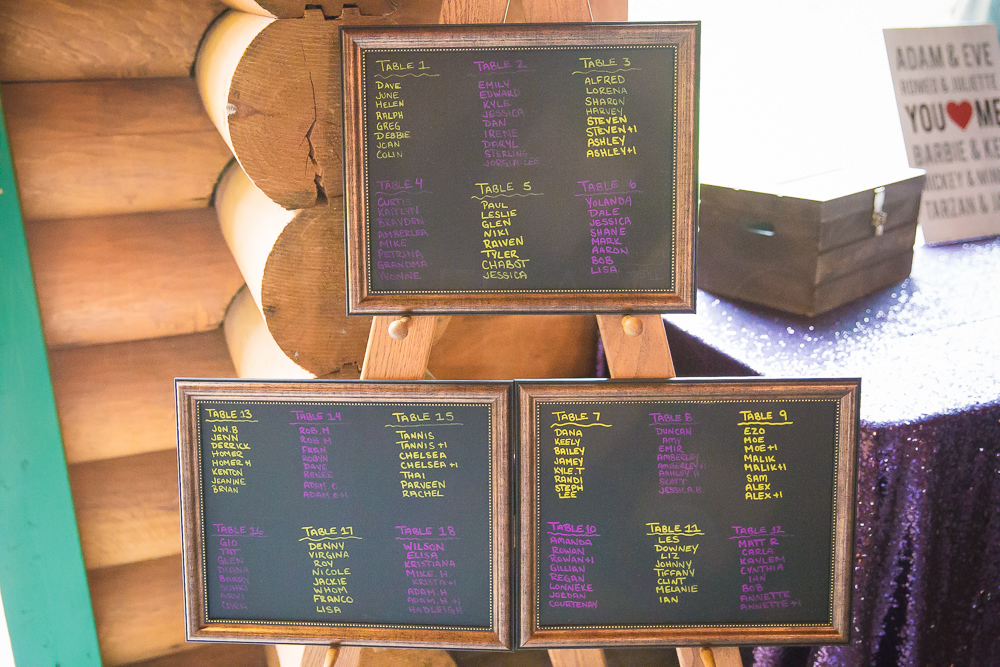 TABLE 1
DAVE
JUNE
HELEN
RALPH
GREG
DEBBIE
JOAN
COLIN
TABLE 2
EMILY
EDWARD
KYLE
JESSICA
DAN
IRENE
DARYL
STERLING
TABLE 3
ALFRED
LORENA
SHARON
HARVEY
STEVEN
STEVEN+1
ASHLEY
ASHLEY+1
TABLE 4
CURTIS
KAITLYN
BRAYDEN
AMBERLEA
MIKE
GRANDMA
YVONNE
TABLE 5
PAUL
LESLIE
GLEN
NIKI
RAVEN
TYLER
CHABOT
JESSICA
TABLE 6
YOLANDA
DALE
JESSICA
SHANE
MARK
AARON
BOB
LISA
TABLE 13
JON.B
JENN
DERRICK
HOMER
HOMER+1
KENTON
JEANINE
BRYAN
TABLE 14
ROB.M
ROB.M
FRAN
ROBYN
DAVE
RENEE
TABLE 15
TANNIS
TANNIS+1
CHELSEA
CHELSEA+1
THAI
PARVEEN
RACHEL
TABLE 16
GIO
PAT
GLEN
DIANA
BARRY
TABLE 17
DENNY
VIRGINA
ROY
NICOLE
JACKIE
WHOM
FRANCO
LISA
TABLE 18
WILSON
ELISA
KRISTIANA
MIKE.H
KRISTA+1
ADAM.H
ADAM.H+1
HADLEIGH
TABLE 7
DANA
KEELY
BAILEY
JAMEY
KYLE.T
RANDI
STEPH
LEE
TABLE 8
DUNCAN
AMY
EMIR
AMBERLEY
AMBERLEY+1
ASHLEY.H
SCOTT
JESSICA.R
TABLE 9
EZO
MOE
MOE+1
MALIK
MALIK+1
SAM
ALEX
ALEX+1
TABLE 10
AMANDA
ROWAN
ROWAN+1
GILLIAN
REGAN
LONNEKE
JORDAN
COURTENAY
TABLE 11
LES
DOWNEY
LIZ
JOHNNY
TIFFANY
CLINT
MELANIE
IAN
TABLE 12
MATT R
CARLA
KAYLEM
CYNTHIA
IAN
BOB
ANNETTE
ANNETTE+1
ADAM & EVE
ROMEO & JULIETTE
YOU ME
BARBIE & KE
MICKEY & MINN
TARZAN & J